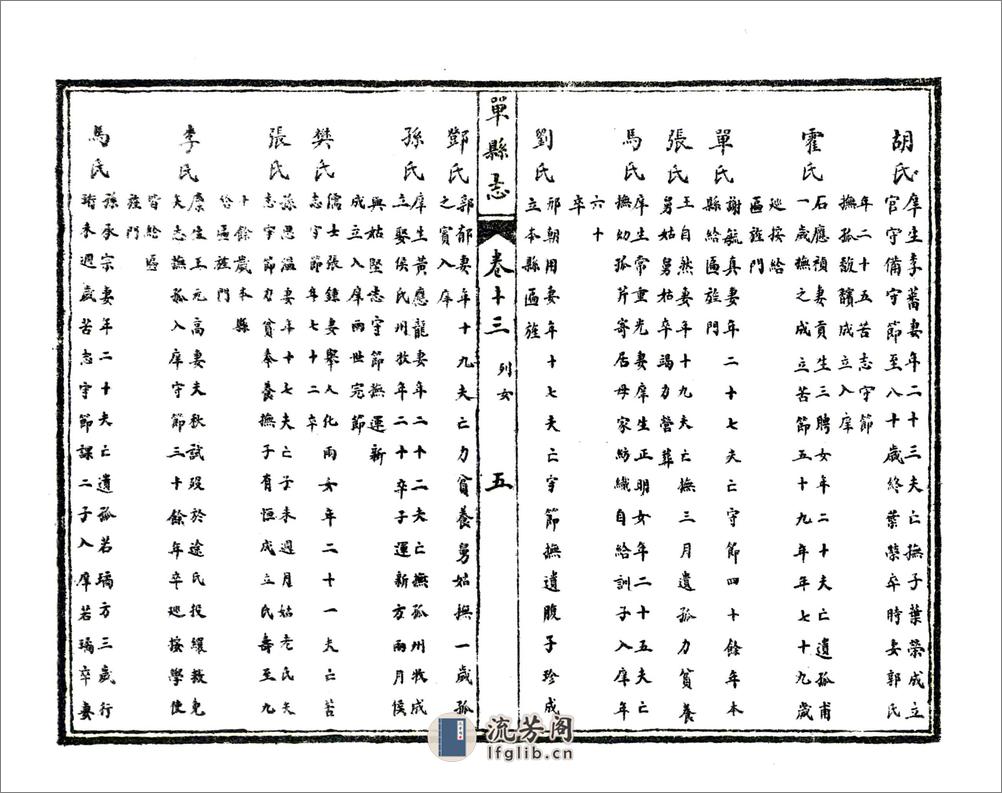 胡氏
庠生李蕎妻年二十三夫亡撫子葉榮成立
官守備守節至八十歲終葉榮卒時妾郭氏
年二十五苦志守節
撫孤馥馪成立入庠
霍氏
石應禎妻貢生三聘女年二十夫亡遺孤甫
一歲撫之成立苦節五十九年年七十九歲
巡按給
匾旌門
單氏
謝毓真妻年二十七夫亡守節四十餘年本
縣給匾旌門
張氏
王自然妻年十九夫亡撫三月遺孤力貧養
舅姑舅姑卒竭力營葬
馬氏
庠生常重光妻庠生正明女年二十五夫亡
撫幼孤芹寄居母家紡織自給訓子入庠年
六十
卒
劉氏
邢朝用妻年十七夫亡守節撫遺腹子珍成
立本縣匾旌
單縣志
卷十三
列女
五
鄧氏
郭郁妻年十九夫亡力貧養舅姑撫一歲孤
之賓入庠
孫氏
庠生黃應龍妻年二十二夫亡撫孤州牧成
立娶侯氏州牧年二十卒子運新方兩月侯
與姑堅志守節撫運新
成立入庠兩世完節
樊氏
儒士張鍊妻舉人化雨女年二十一夫亡苦
志守節年七十二卒
張氏
孫思溫妻年十七夫亡子未週月姑老氏矢
志守節力貧奉養撫子有恒成立氏壽至九
十餘歲本縣
給匾旌門
李氏
廪生王元高妻夫秋試歿於途氏投繯救免
矢志撫孤入庠守節三十餘年卒巡按學使
皆給匾
旌門
馬氏
孫承宗妻年二十夫亡遺孤若璃方三歲行
琦未週歲苦志守節課二子入庠若璃卒妻
流芳阁
lfglib.cn